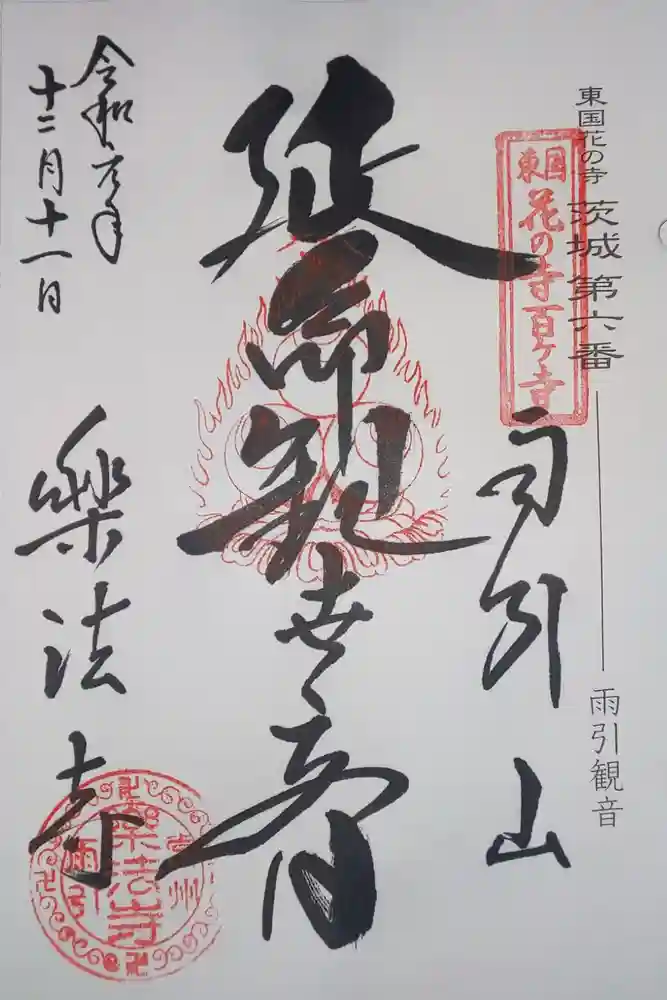 東国花の寺 茨城 第六番
雨引観音
東国
花の寺百ヶ寺
雨引山
延命観世音
令和元年
十二月十一日
樂法寺
常州
樂法寺
雨引